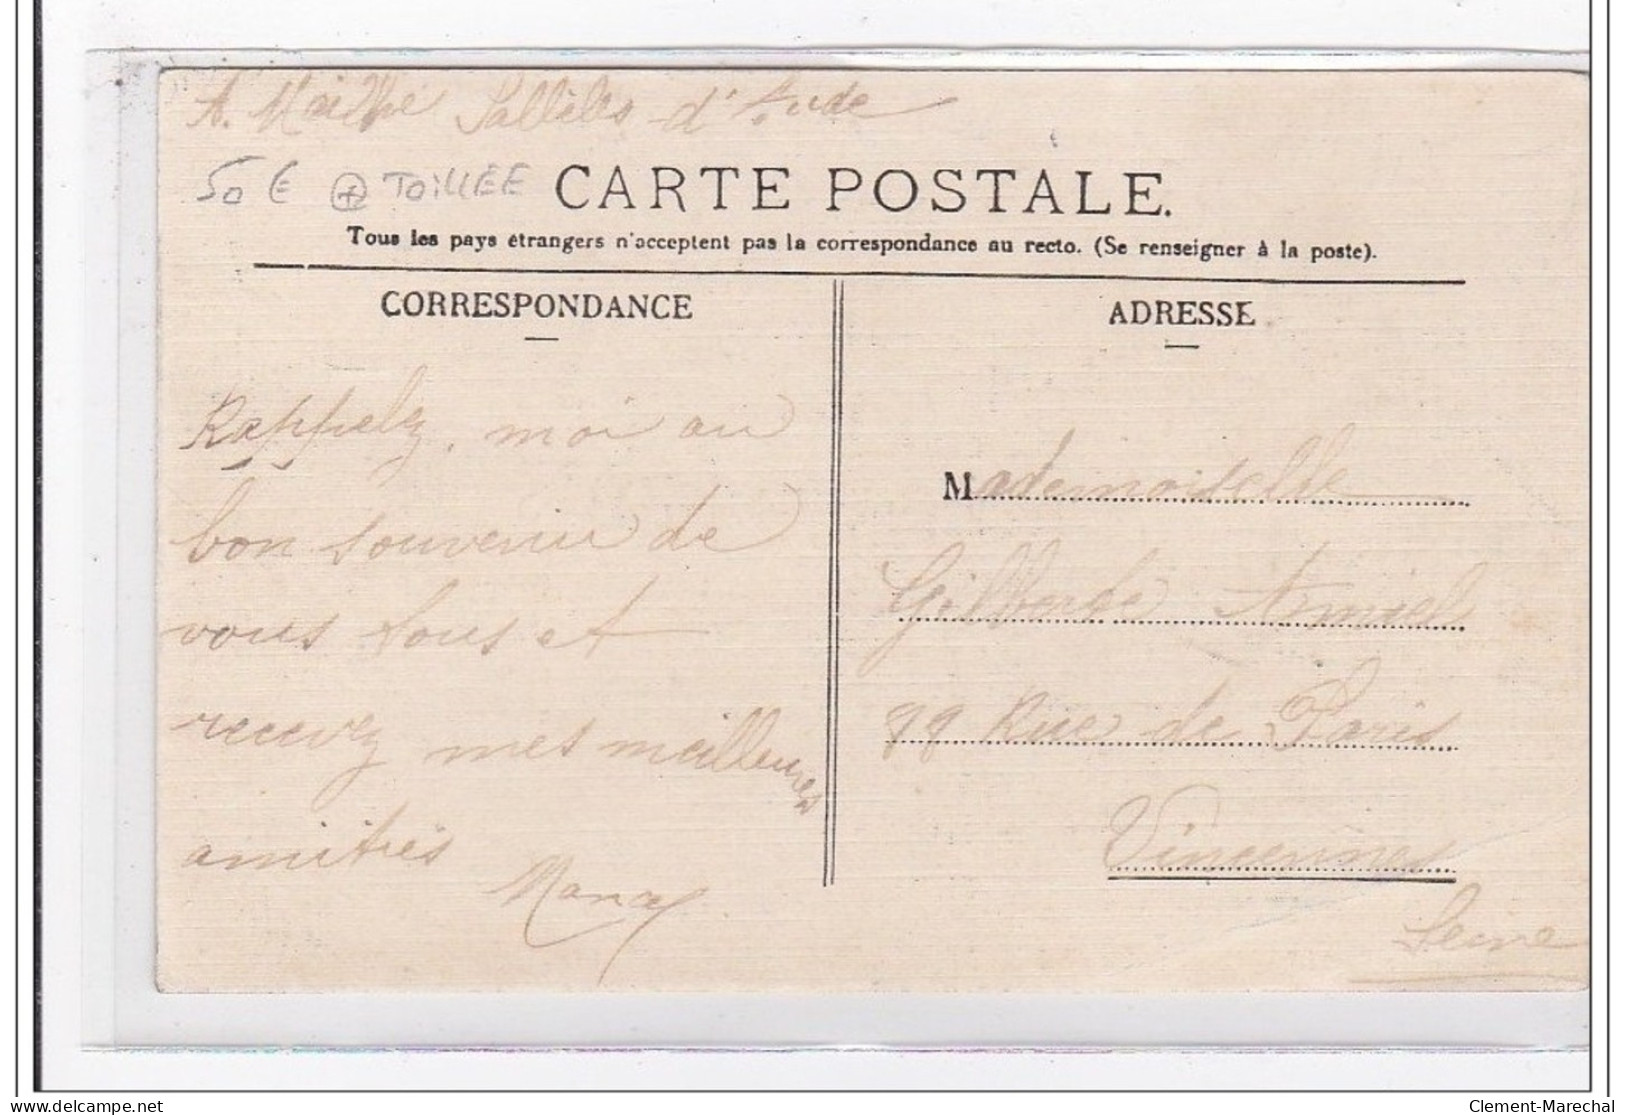 A. Maithe Sallèles d'Aude
50 € + TOILLÉE
CARTE POSTALE.
Tous les pays étrangers n'acceptent pas la correspondance au recto. (Se renseigner à la poste).
CORRESPONDANCE
Rappelez, moi au
bon souvenir de
vous tous et
recevez mes meilleures
amitiés
ADRESSE
Mademoiselle
Gilberte Amiel
Rue de Paris
Vincennes
Seine
delcampe.net
Clement-Marechal